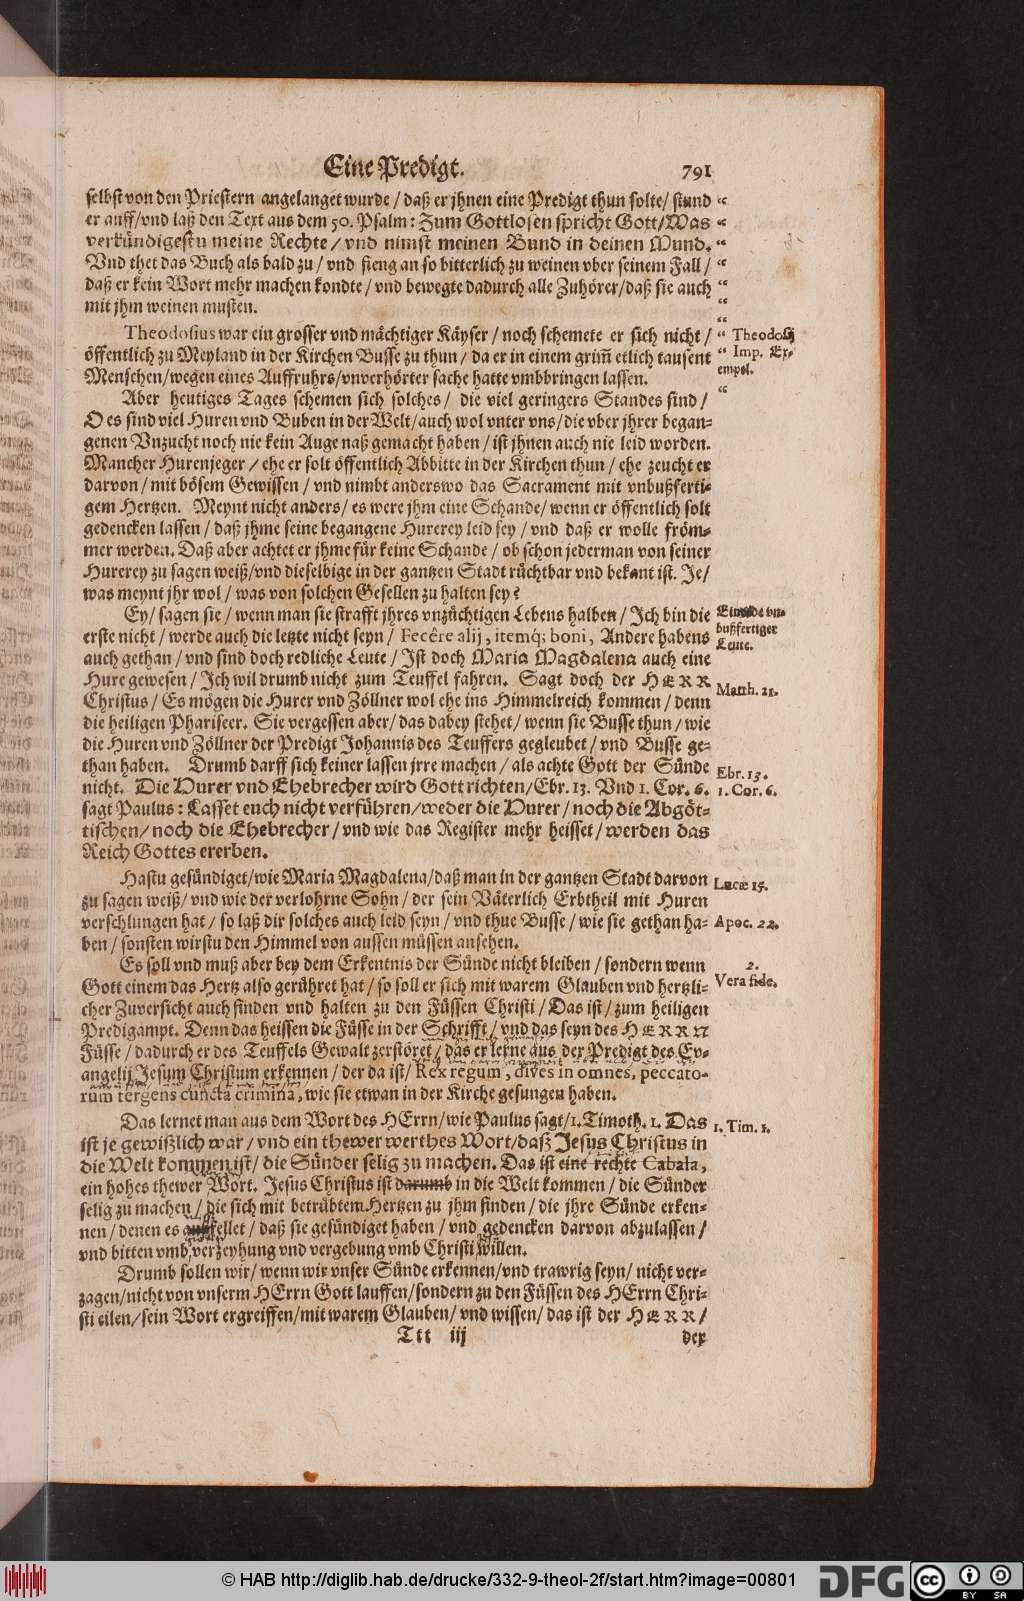 Eine Predigt. 791
selbst von den Priestern angelanget wurde / daß er jhnen eine Predigt thun solte / stund
er auff / vnd laß den Text aus dem 50. Psalm: Zum Gottlosen spricht Gott / Was
verkündigestu meine Rechte / vnd nimst meinen Bund in deinen Mund.
Vnd thet das Buch als bald zu / vnd fieng an so bitterlich zu weinen vber seinem Fall /
daß er kein Wort mehr machen kondte / vnd bewegte dadurch alle Zuhörer / daß sie auch
mit jhm weinen musten.
Theodosius war ein grosser vnd mächtiger Käyser / noch schemete er sich nicht /
öffentlich zu Meyland in der Kirchen Busse zu thun / da er in einem grim̃ etlich tausent
Menschen / wegen eines Auffruhrs / vnverhörter sache hatte vmbbringen lassen.
Theodosij
Imp. Ex-
empel.
Aber heutiges Tages schemen sich solches / die viel geringers Standes sind /
O es sind viel Huren vnd Buben in der Welt / auch wol vnter vns / die vber jhrer began-
genen Vnzucht noch nie kein Auge naß gemacht haben / ist jhnen auch nie leid worden.
Mancher Hurenjeger / ehe er solt öffentlich Abbitte in der Kirchen thun / ehe zeucht er
darvon / mit bösem Gewissen / vnd nimbt anderswo das Sacrament mit vnbußferti-
gem Hertzen. Meynt nicht anders / es were jhm eine Schande / wenn er öffentlich solt
gedencken lassen / daß jhme seine begangene Hurerey leid sey / vnd daß er wolle fröm-
mer werden. Daß aber achtet er jhme für keine Schande / ob schon jederman von seiner
Hurerey zu sagen weiß / vnd dieselbige in der gantzen Stadt rüchtbar vnd bekant ist. Je /
was meynt jhr wol / was von solchen Gesellen zu halten sey?
Ey / sagen sie / wenn man sie strafft jhres vnzüchtigen Lebens halben / Ich bin die
erste nicht / werde auch die letzte nicht seyn / Fecére alij, itemq́; boni, Andere habens
auch gethan / vnd sind doch redliche Leute / Ist doch Maria Magdalena auch eine
Hure gewesen / Ich wil drumb nicht zum Teuffel fahren. Sagt doch der HERR
Christus / Es mögen die Hurer vnd Zöllner wol ehe ins Himmelreich kommen / denn
die heiligen Phariseer. Sie vergessen aber / das dabey stehet / wenn sie Busse thun / wie
die Huren vnd Zöllner der Predigt Johannis des Teuffers gegleubet / vnd Busse ge-
than haben. Drumb darff sich keiner lassen jrre machen / als achte Gott der Sünde
nicht. Die Hurer vnd Ehebrecher wird Gott richten / Ebr. 13. Vnd 1. Cor. 6.
sagt Paulus: Lasset euch nicht verführen / weder die Hurer / noch die Abgöt-
tischen / noch die Ehebrecher / vnd wie das Register mehr heisset / werden das
Reich Gottes ererben.
Einrede vn-
bußfertiger
Leute.
Matth. 21.
Ebr. 13.
1. Cor. 6.
Hastu gesündiget / wie Maria Magdalena / daß man in der gantzen Stadt darvon
zu sagen weiß / vnd wie der verlohrne Sohn / der sein Väterlich Erbtheil mit Huren
verschlungen hat / so laß dir solches auch leid seyn / vnd thue Busse / wie sie gethan ha-
ben / sonsten wirstu den Himmel von aussen müssen ansehen.
Lucæ 15.
Apoc. 22.
Es soll vnd muß aber bey dem Erkentnis der Sünde nicht bleiben / sondern wenn
Gott einem das Hertz also gerühret hat / so soll er sich mit warem Glauben vnd hertzli-
cher Zuversicht auch finden vnd halten zu den Füssen Christi / Das ist / zum heiligen
Predigampt. Denn das heissen die Füsse in der Schrifft / vnd das seyn des HERRN
Füsse / dadurch er des Teuffels Gewalt zerstöret / das er lerne aus der Predigt des Ev-
angelij Jesum Christum erkennen / der da ist / Rex regum, dives in omnes, peccato-
rum tergens cuncta crimina, wie sie etwan in der Kirche gesungen haben.
2.
Vera fide.
Das lernet man aus dem Wort des HErrn / wie Paulus sagt / 1. Timoth. 1. Das
ist je gewißlich war / vnd ein thewer werthes Wort / daß Jesus Christus in
die Welt kommen ist / die Sünder selig zu machen. Das ist eine rechte Cabala,
ein hohes thewer Wort. Jesus Christus ist darumb in die Welt kommen / die Sünder
selig zu machen / die sich mit betrübtem Hertzen zu jhm finden / die jhre Sünde erken-
nen / denen es / daß sie gesündiget haben / vnd gedencken darvon abzulassen /
vnd bitten vmb verzeyhung vnd vergebung vmb Christi willen.
1. Tim. 1.
Drumb sollen wir / wenn wir vnser Sünde erkennen / vnd trawrig seyn / nicht ver-
zagen / nicht von vnserm HErrn Gott lauffen / sondern zu den Füssen des HErrn Chri-
sti eilen / sein Wort ergreiffen / mit warem Glauben / vnd wissen / das ist der HERR /
Ttt iij der
© HAB http://diglib.hab.de/drucke/332-9-theol-2f/start.htm?image=00801
DFG
cc BY SA